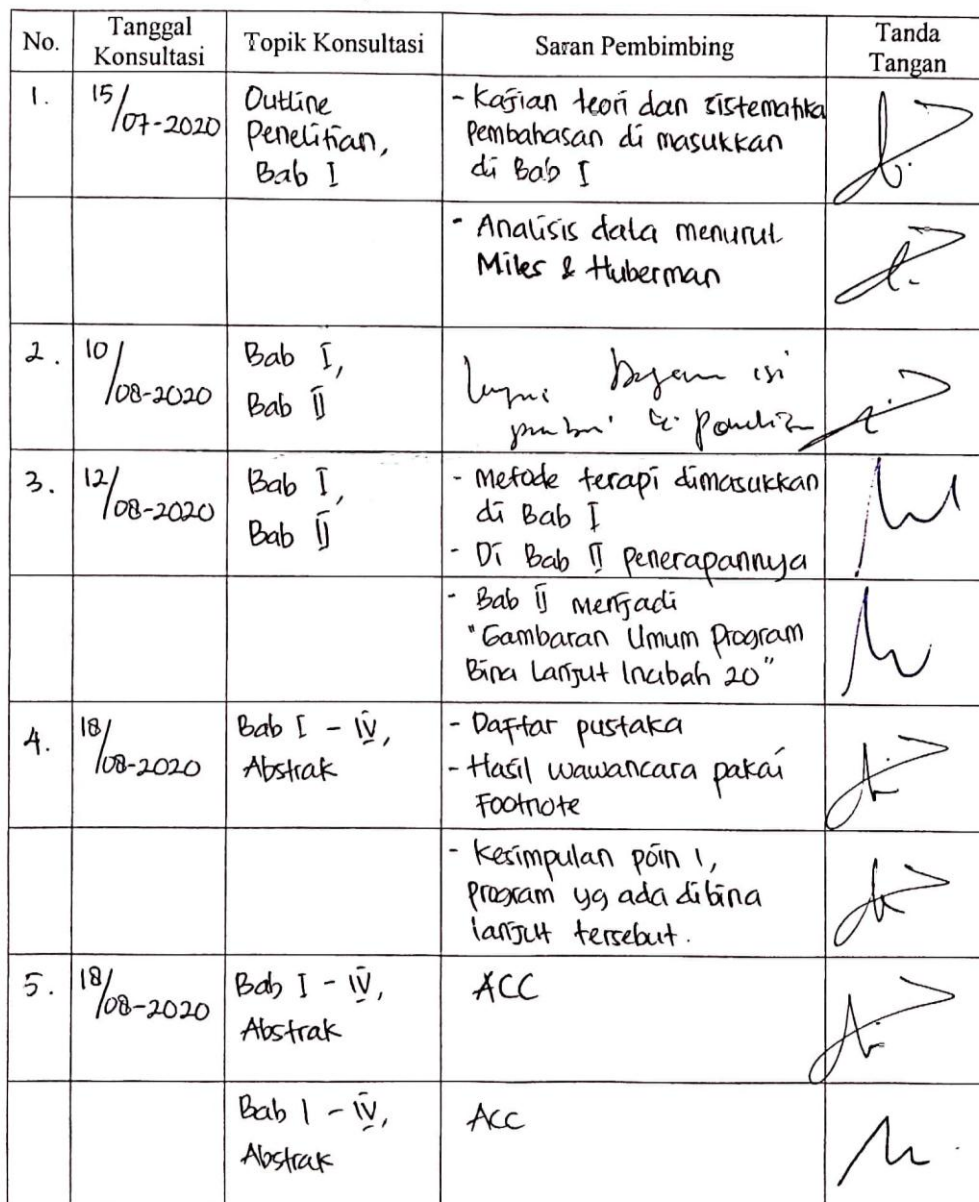 No.
Tanggal
Konsultasi
Topik Konsultasi
Saran Pembimbing
Tanda
Tangan
1.
15/07-2020
Outline
Penelitian,
Bab I
- Kajian teori dan sistematika
pembahasan di masukkan
di Bab I
- Analisis data menurut
Miles & Huberman
2.
10/08-2020
Bab I,
Bab II
isi
3.
12/08-2020
Bab I,
Bab II
- Metode terapi dimasukkan
di Bab I
- Di Bab II penerapannya
- Bab II menjadi
"Gambaran Umum Program
Bina Lanjut Inabah 20"
4.
18/08-2020
Bab I - IV,
Abstrak
- Daftar pustaka
- Hasil wawancara pakai
Footnote
- Kesimpulan poin 1,
program yg ada dibina
lanjut tersebut.
5.
18/08-2020
Bab I - IV,
Abstrak
ACC
Bab I - IV,
Abstrak
ACC